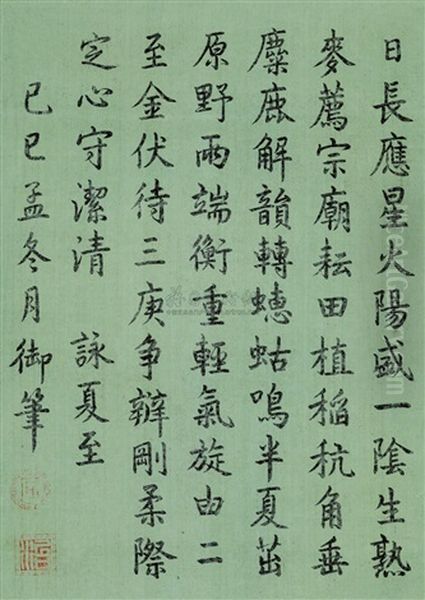 日長應星火陽盛一陰生熟
麥薦宗廟耘田植稻秔角垂
麋鹿解韻轉蟪蛄鳴半夏茁
原野兩端衡重輕氣旋由二
至金伏待三庚爭辨剛柔際
定心守潔清　詠夏至
己巳孟冬月御筆